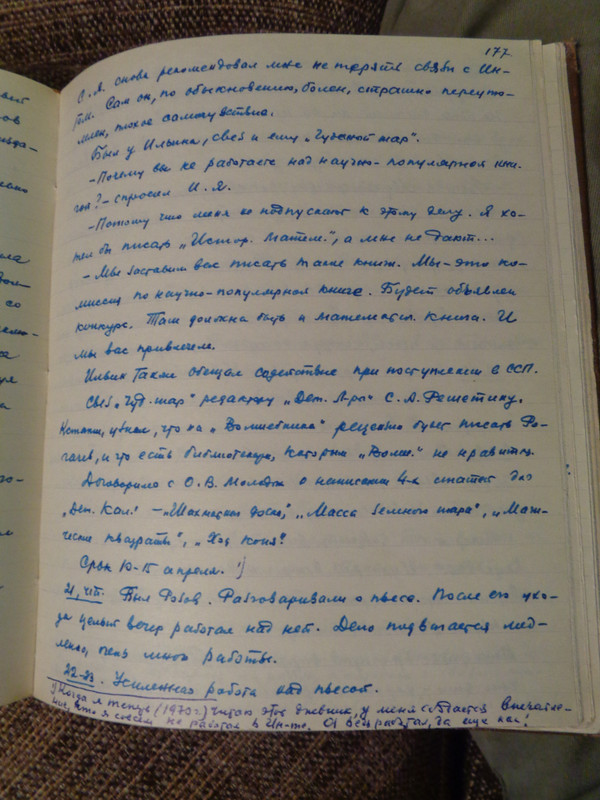 177
С. Я. снова рекомендовал мне не терять связи с Ин-
том. Сам он, по обыкновению, болен, страшно переуто-
млен, плохое самочувствие.
Был у Ильина, свез и ему „Чудесной шар".
– Почему вы не работаете над научно-популярной кни-
гой? – спросил И. Я.
– Потому что меня не подпускают к этому делу. Я хо-
тел бы писать „Истор. матем.", а мне не дают...
– Мы заставим вас писать такие книги. Мы – это ко-
миссия по научно-популярной книге. Будет объявлен
конкурс. Там должна быть и математич. книга. И
мы вас привлечем.
Ильин также обещал содействие при поступлении в ССП.
Свез „Чуд. шар" редактору „Дет. Л-ры" С. А.
Кстати, узнал, что на „Волшебника" рецензию будет писать Ро-
гачев, и что есть библиотекари, которым „Волш." не нравится.
Договорился с О. В. о написании 4-х статей для
„Дет. Кал." – „Шахматная доска", „Масса земного шара", „Маги-
ческие квадраты", „Ход коня".
Срок 10-15 апреля. 1)
21, чт. Был Разговаривали о пьесе. После его ухо-
да целый вечер работал над ней. Дело подвигается мед-
ленно, очень много работы.
22-23. Усиленная работа над пьесой.
1) Когда я теперь (1970 г.) читаю этот дневник, у меня создается впечатле-
ние, что я совсем не работал в Ин-те. А ведь работал, да еще как!